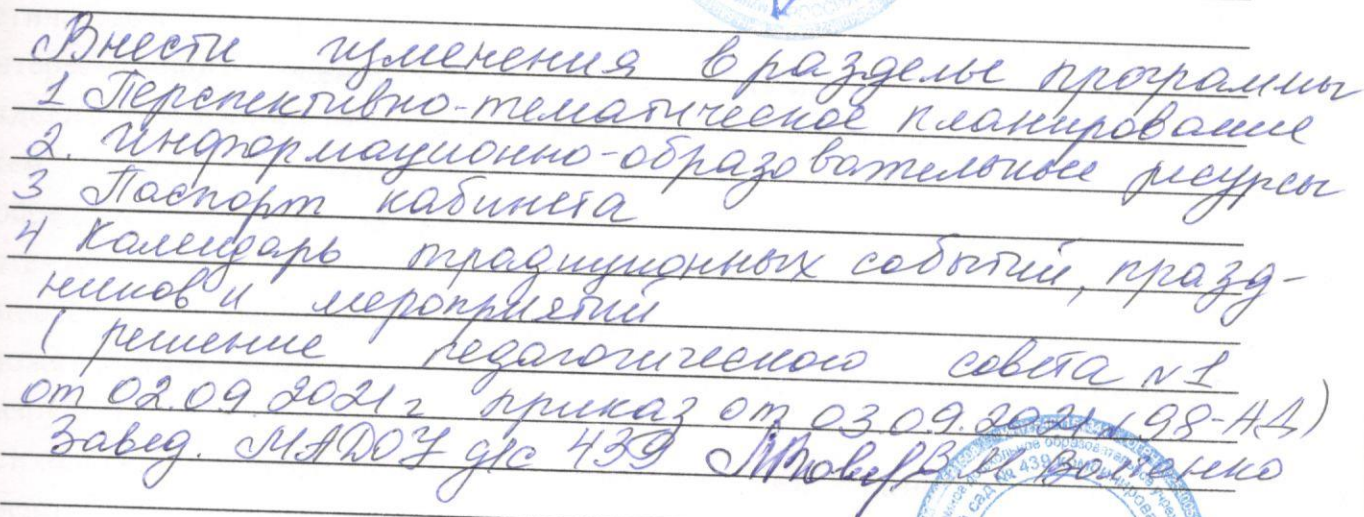 Внести изменения в разделы программы
1 Перспективно-тематическое планирование
2. Информационно-образовательные ресурсы
3 Паспорт кабинета
4 Календарь традиционных событий, празд-
ников и мероприятий
( решение педагогического совета N1
от 02.09.2021г приказ от 03.09.2021 98-АД)
Завед. МАДОУ д/с 439
сад № 439